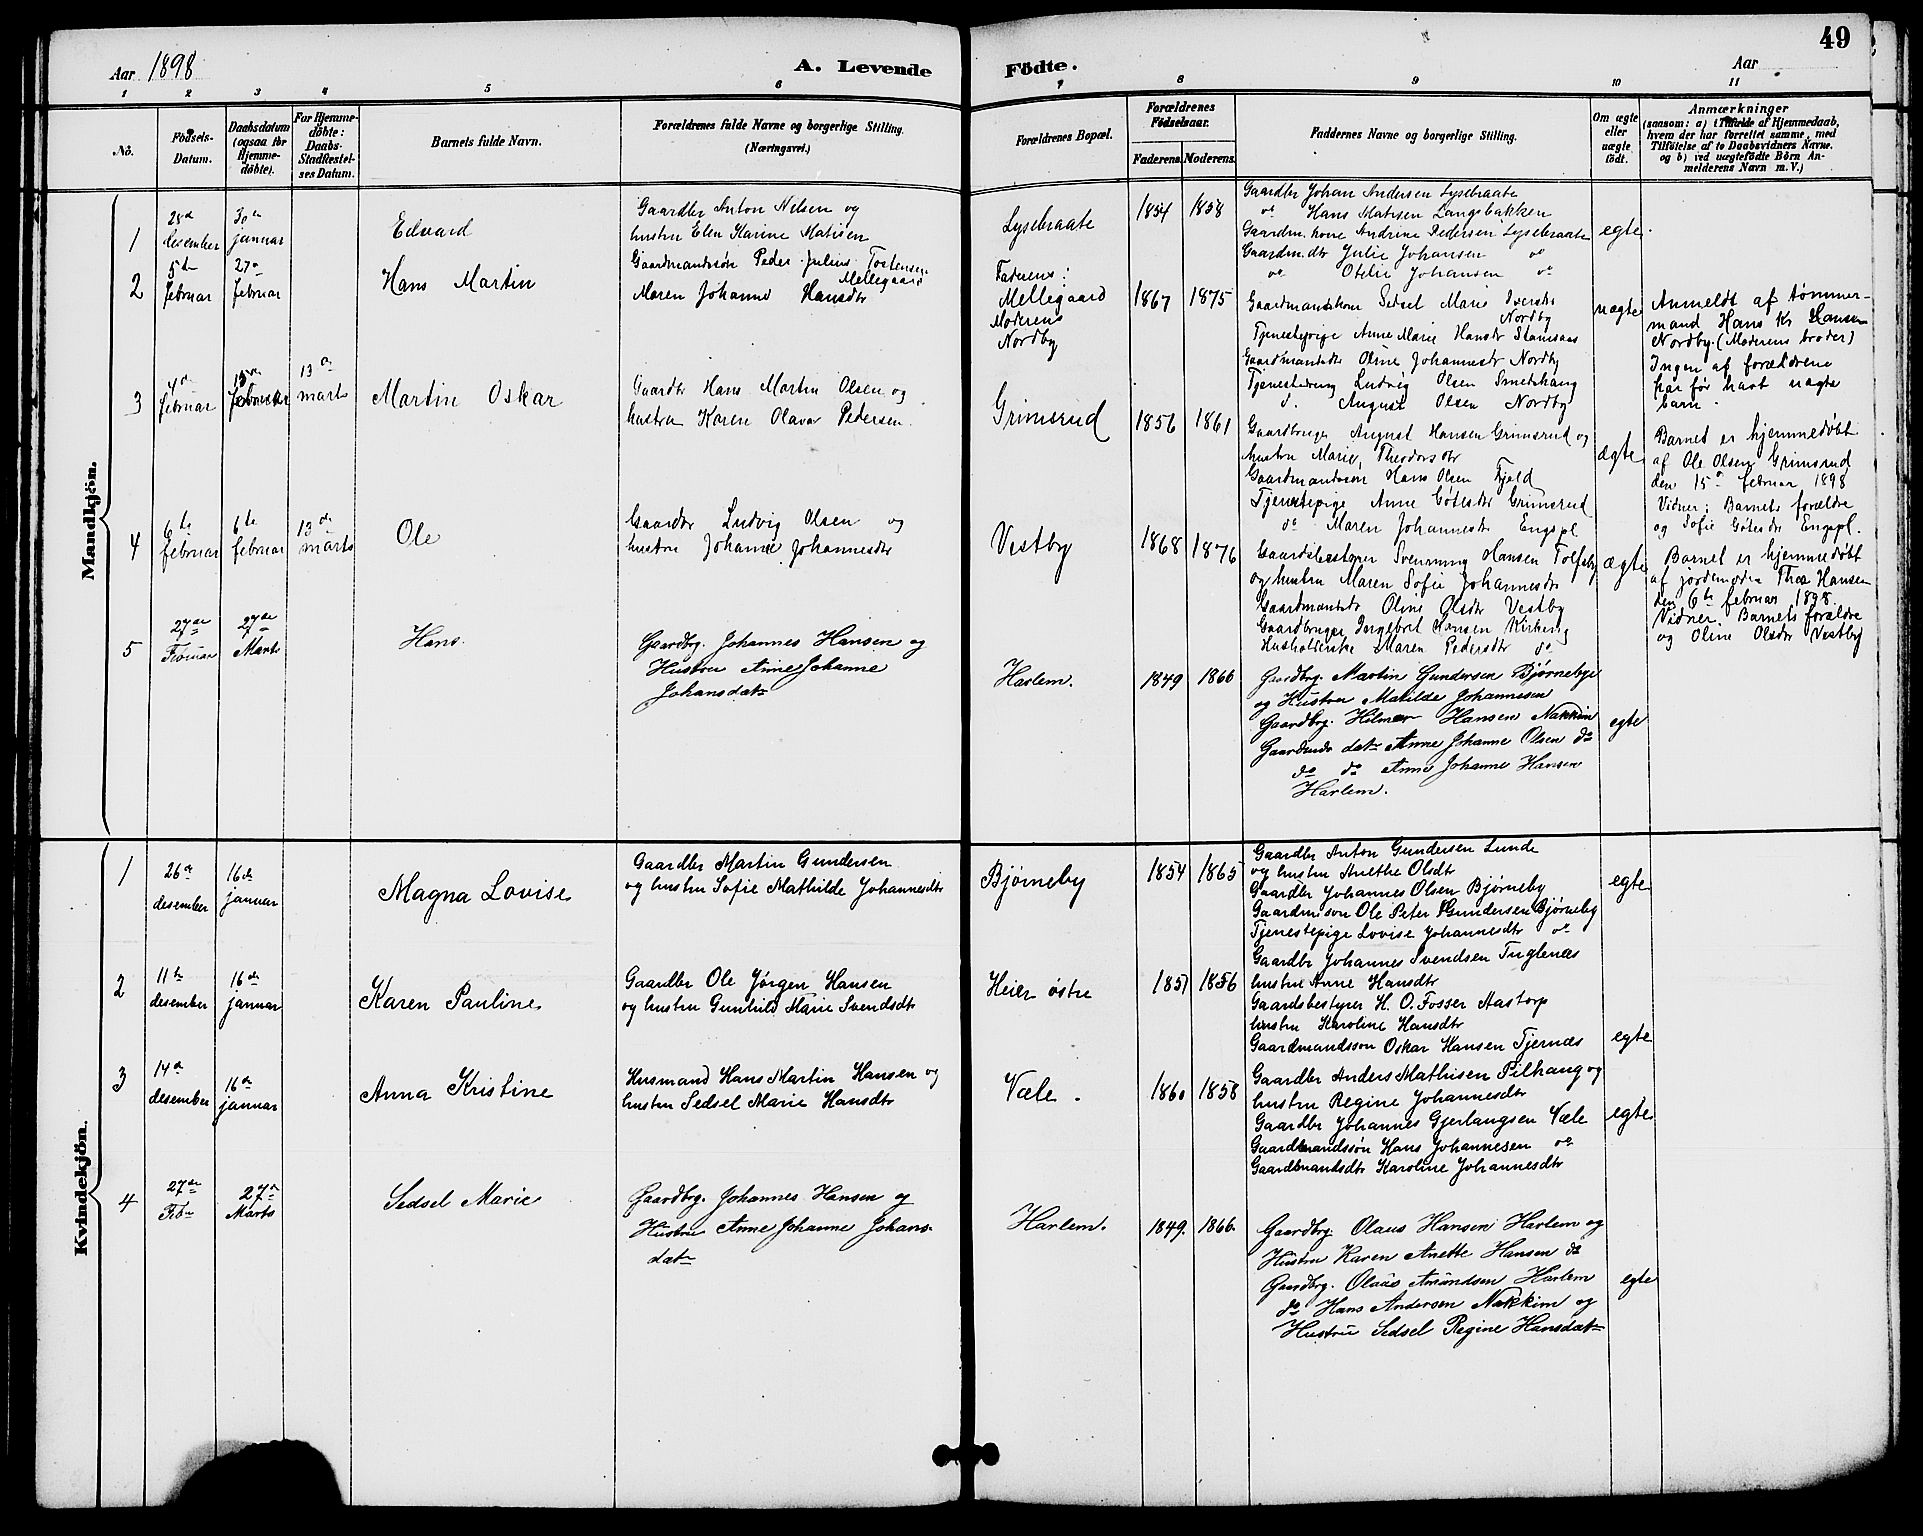 49
Aar 1898
A. Levende Födte.
Aar
1 2 3 4 5 6 7 8 9 10 11
No.
Födsels-Datum.
Daabsdatum (ogsaa for Hjemme-döbte).
For Hjemme-döbte: Daabs-Stadfæstel-ses Datum.
Barnets fulde Navn.
Forældrenes fulde Navne og borgerlige Stilling.
(Næringsvei.)
Forældrenes Bopæl.
Forældrenes Födselsaar.
Faderens. Moderens.
Faddernes Navne og borgerlige Stilling.
Om ægte eller uægte födt.
Anmærkninger
(saasom: a) i Tilfælde af Hjemmedaab, hvem der har forrettet samme, med Tilföielse af to Daabsvidners Navne. og b) ved uægtefödte Börn Anmelderens Navn m. V.)
Mandkjön.
1
28de desember
30te januar
Edvard
Gaardbr Anton Nilsen og
hustru Elen Karine Matisen
Lysebraate
1854 1858
Gaardbr Johan Andersen Lysebraate
do Hans Matisen Langsbakken
Gaardm. kone Andrine Pedersen Lysebraate
Gaardm.dtr Julie Johansen do
do Otelie Johansen do
egte
2
5te februar
27de februar
Hans Martin
Gaardmandssøn Peder Julius Torstensen
Mellegaard
Maren Johanne Hansdtr
Faderens:
Mellegaard
Moderens
Nordby
1867 1875
Gaardmandskone Sedsel Marie Iversdtr
Nordby
Tjenestepige Anne Marie Hansdtr
Gaardmandsdtr Oline Johannesdtr Nordby
Tjenestedreng Ludvig Olsen Smedshaug
d. August Olsen Nordby
uægte
Anmeldt af tømmer-
mand Hans Kr Hansen
Nordby. (Moderens broder)
Ingen af forældrene
har før havt uægte
barn.
3
4de februar
15de februar
13de marts
Martin Oskar
Gaardbr Hans Martin Olsen og
hustru Karen Olava Pedersen.
Grimsrud
1856 1861
Gaardbruger August Hansen Grimsrud og
hustru Marie Theodorsdtr
Gaardmandssøn Hans Olsen Fjeld
Tjenestepige Anne Götesdtr Grimsrud
do Maren Johannesdtr Engspl
ægte
Barnet er hjemmedøbt
af Ole Olsen Grimsrud
den 15de februar 1898
Vidner: Barnets forældre
og Sofie Gøtesdtr Engspl.
4
6te februar
6te februar
13de marts
Ole
Gaardbr Ludvig Olsen og
hustru Johanne Johannesdtr
Vestby
1868 1876
Gaardsbestyrer Svenning Hansen Tolfsby
og hustru Maren Sofie Johannesdtr
Gaardmandsdtr Oline Olsdtr Vestby
Gaardbruger Ingebret Hansen Kirkeng
Husholderske Maren Pedersdtr do
ægte
Barnet er hjemmedøbt
af jordemoder Thea Hansen
den 6te februar 1898.
Vidner. Barnets forældre
og Oline Olsdtr Vestby
5
27de Februar
27de Marts
Hans.
Gaardbrg. Johannes Hansen og
Hustru Anne Johanne
Johansdatr
Harlem.
1849 1866
Gaardbrg. Martin Gundersen Bjørnebye
og Hustru Matilde Johannessen
Gaardbrg. Hilmar Hansen Nakkim
Gaardmds datr Anne Johanne Olsen do
do do Anne Johanne Hansen
Harlem.
egte
Kvindekjön.
1
26de desember
16de januar
Magna Lovise
Gaardbr Martin Gundersen
og hustru Sofie Mathilde Johannesdtr
Bjørneby
1854 1865
Gaardbr Anton Gundersen Lunde
og hustru Anethe Olsdtr
Gaardbr Johannes Olsen Bjørneby
Gaardm. søn Ole Peter Gundersen Bjørneby
Tjenestepige Lovise Johannesdtr do
egte
2
11te desember
16de januar
Karen Pauline
Gaardbr Ole Jørgen Hansen
og hustru Gunhild Marie Svendsdtr
Heier østre
1851 1856
Gaardbr Johannes Svendsen Fuglenæs
hustru Anne Hansdtr
Gaardsbestyrer H. O. Fosser Aastorp
hustru Karoline Hansdtr
Gaardmandssøn Oskar Hansen Tjernæs
egte
3
14de desember
16de januar
Anna Kristine
Husmand Hans Martin Hansen og
hustru Sedsel Marie Hansdtr
Væle.
1860 1858
Gaardbr Anders Mathisen Pilhaug og
hustru Regine Johannesdtr
Gaardbr Johannes Gjerlaugsen Væle
Gaardmandssøn Hans Johannesen do
Gaardmandsdtr Karoline Johannesdtr
egte
4
27de Feb.
27de Marts
Sedsel Marie
Gaardbrg. Johannes Hansen og
Hustru Anne Johanne Johans-
datr
Harlem.
1849. 1866.
Gaardbrg. Olaus Hansen Harlem og
Hustru Karen Anette Hansen do
Gaardbrg. Olaus Amundsen Harlem
do Hans Andersen Nakkim og
Hustru Sedsel Regine Hansdatr
egte